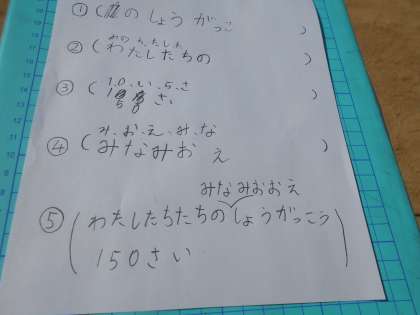 ① ( のしょうがっこ )
② ( わたしたちの )
③ ( 1,0,い,5,さ
さい )
④ ( み、お、え、み、な
みなみお え )
みなみおおえ
⑤ ( わたしたちたちの しょうがっこう
150さい )